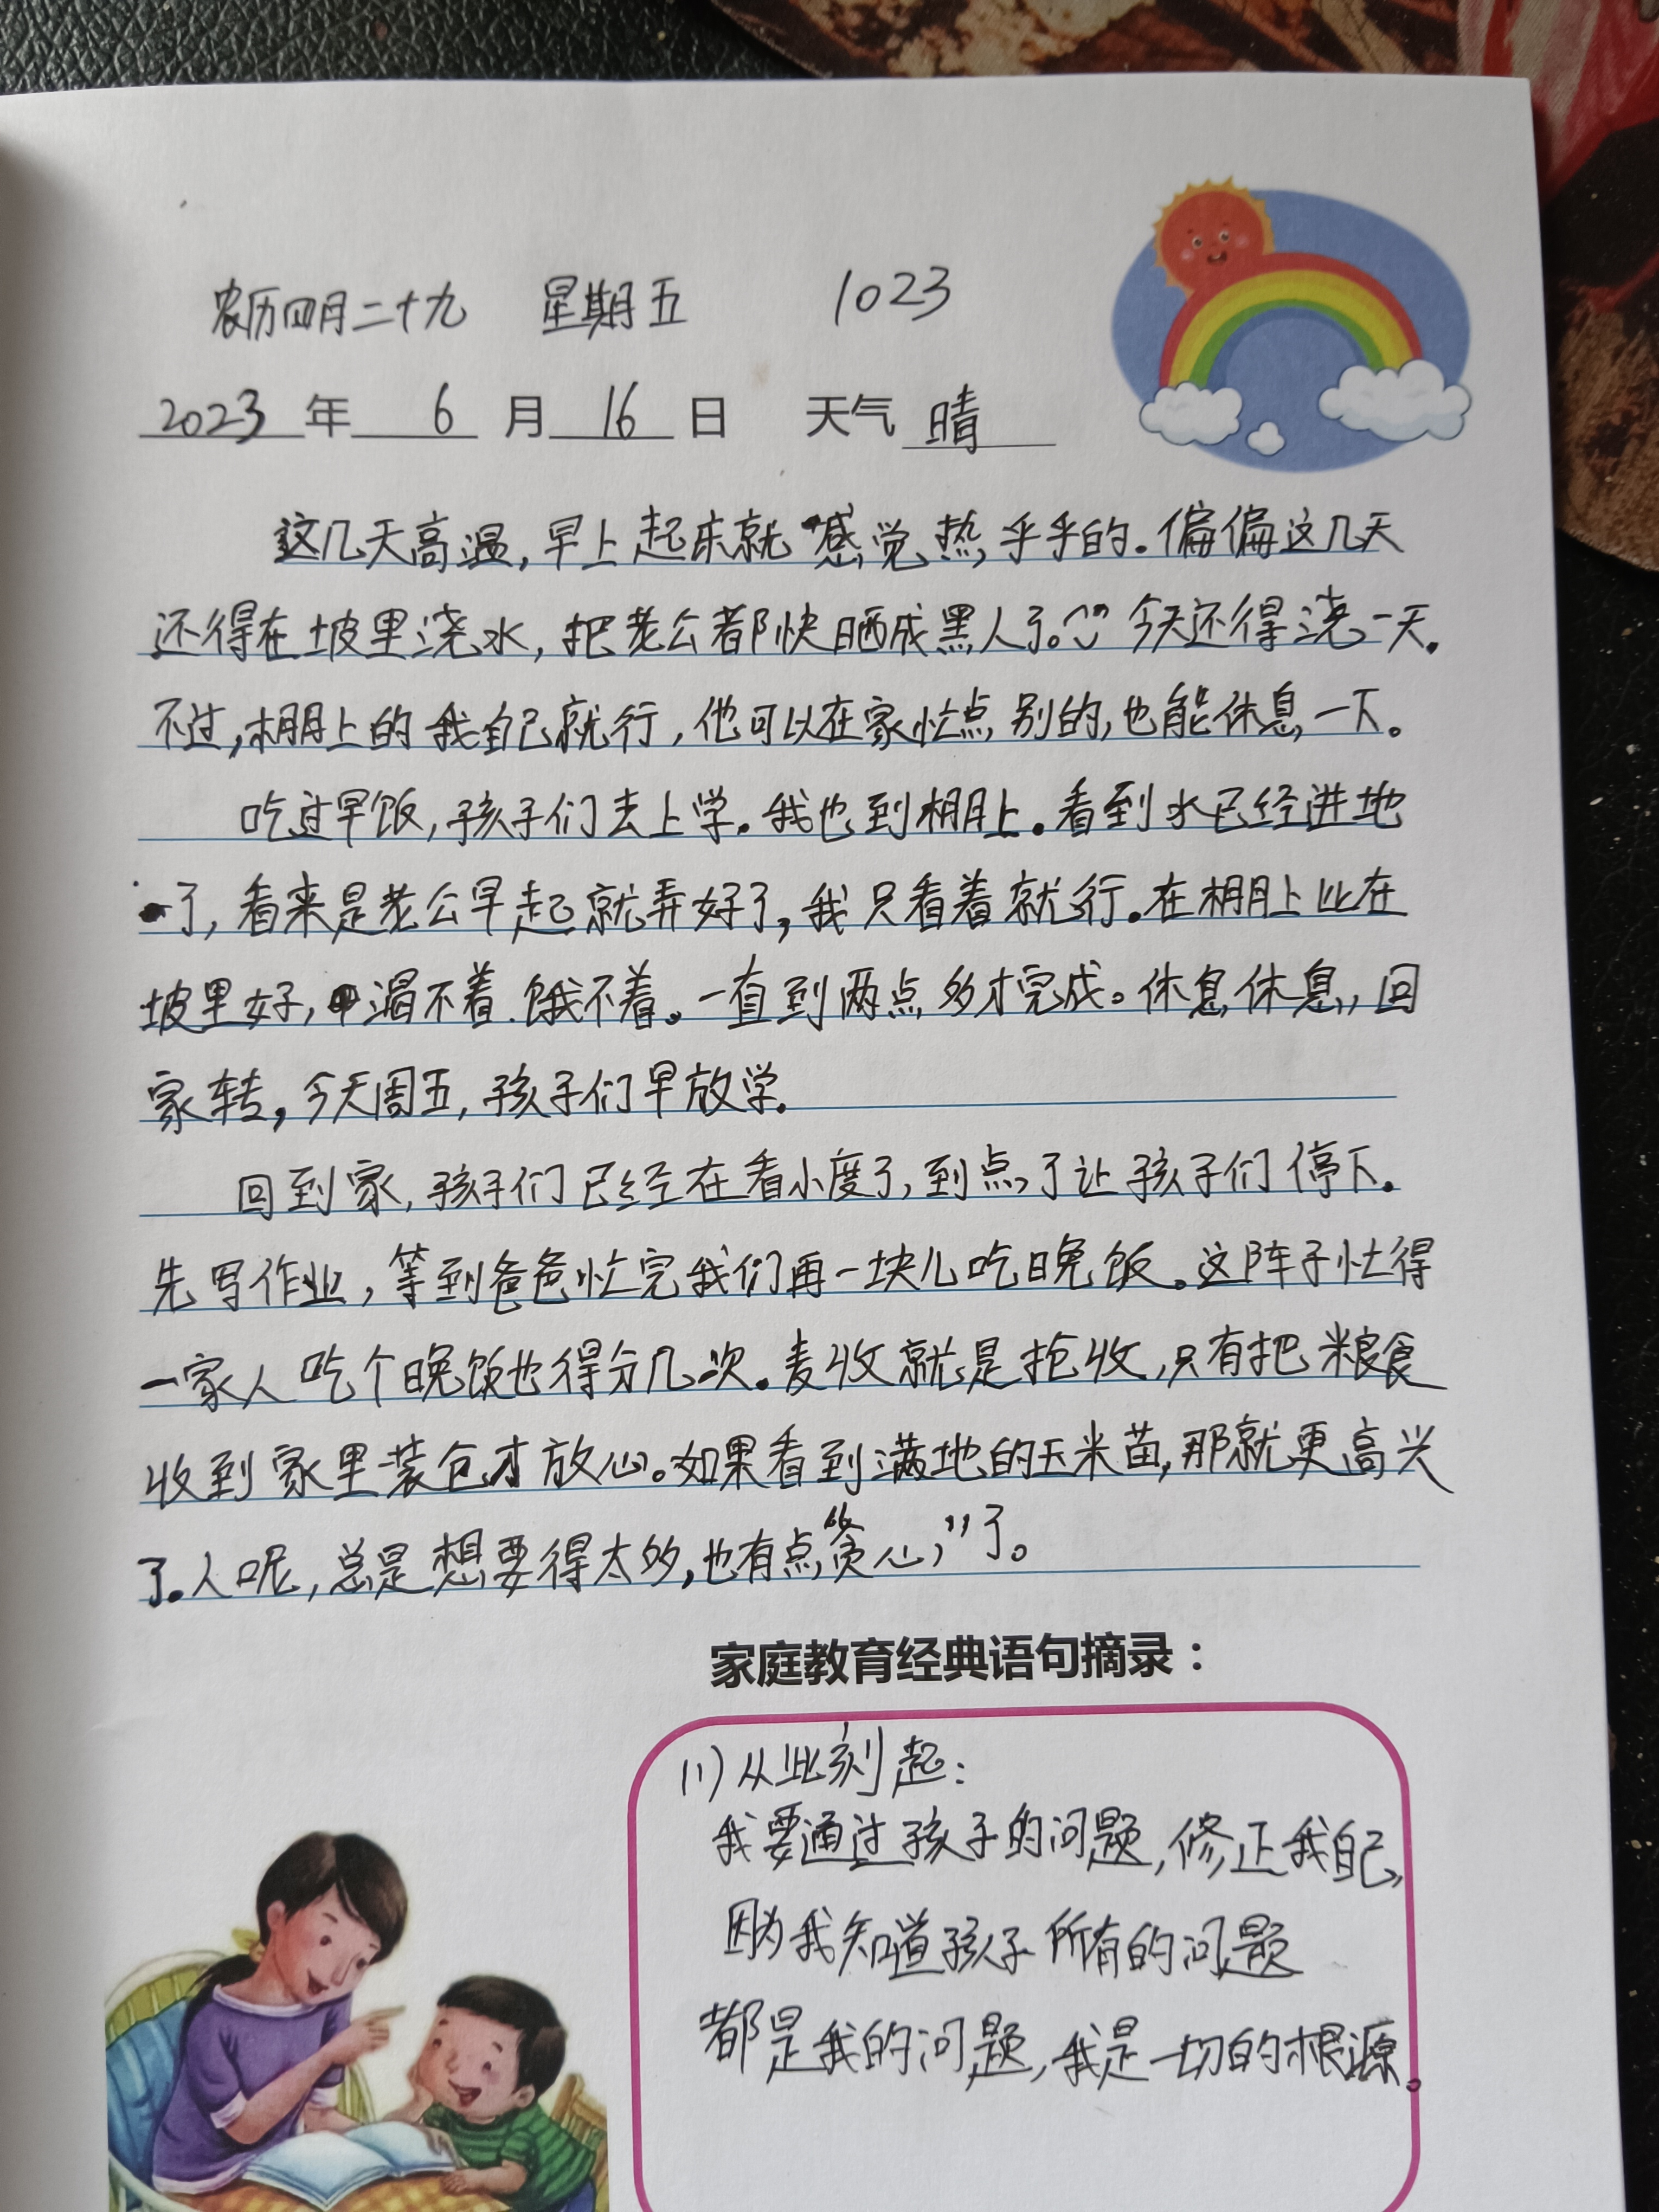 农历四月二十九 星期五 1023
2023年 6 月 16 日 天气 晴
这几天高温,早上起床就感觉热乎乎的.偏偏这几天
还得在坡里浇水,把老公都快晒成黑人了。今天还得浇一天.
不过,棚上的我自己就行,他可以在家忙点别的,也能休息一下。
吃过早饭,孩子们去上学.我也到棚上.看到水已经进地
了,看来是老公早起就弄好了,我只看着就行.在棚上比在
坡里好,渴不着.饿不着。一直到两点多才完成。休息休息,回
家转,今天周五,孩子们早放学.
回到家,孩子们已经在看小度了,到点了让孩子们停下.
先写作业,等到爸爸忙完我们再一块儿吃晚饭。这阵子忙得
一家人吃个晚饭也得分几次.麦收就是抢收,只有把粮食
收到家里装仓才放心。如果看到满地的玉米苗,那就更高兴
了.人呢,总是想要得太多,也有点“贪心”了。
家庭教育经典语句摘录：
(1)从此刻起:
我要通过孩子的问题,修正我自己,
因为我知道孩子所有的问题
都是我的问题,我是一切的根源。